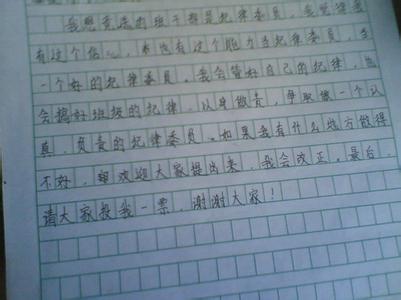 我想竞选的班干部是纪律委员,我觉得我
有这个信心,也有这个能力当纪律委员,当
一个好的纪律委员。我会管好自己的纪律,也
会搞好班级的纪律,以身做责,争取做一个认
真、负责的纪律委员。如果我有什么地方做得
不好,欢迎大家提出来,我会改正。最后,
请大家投我一票,谢谢大家!